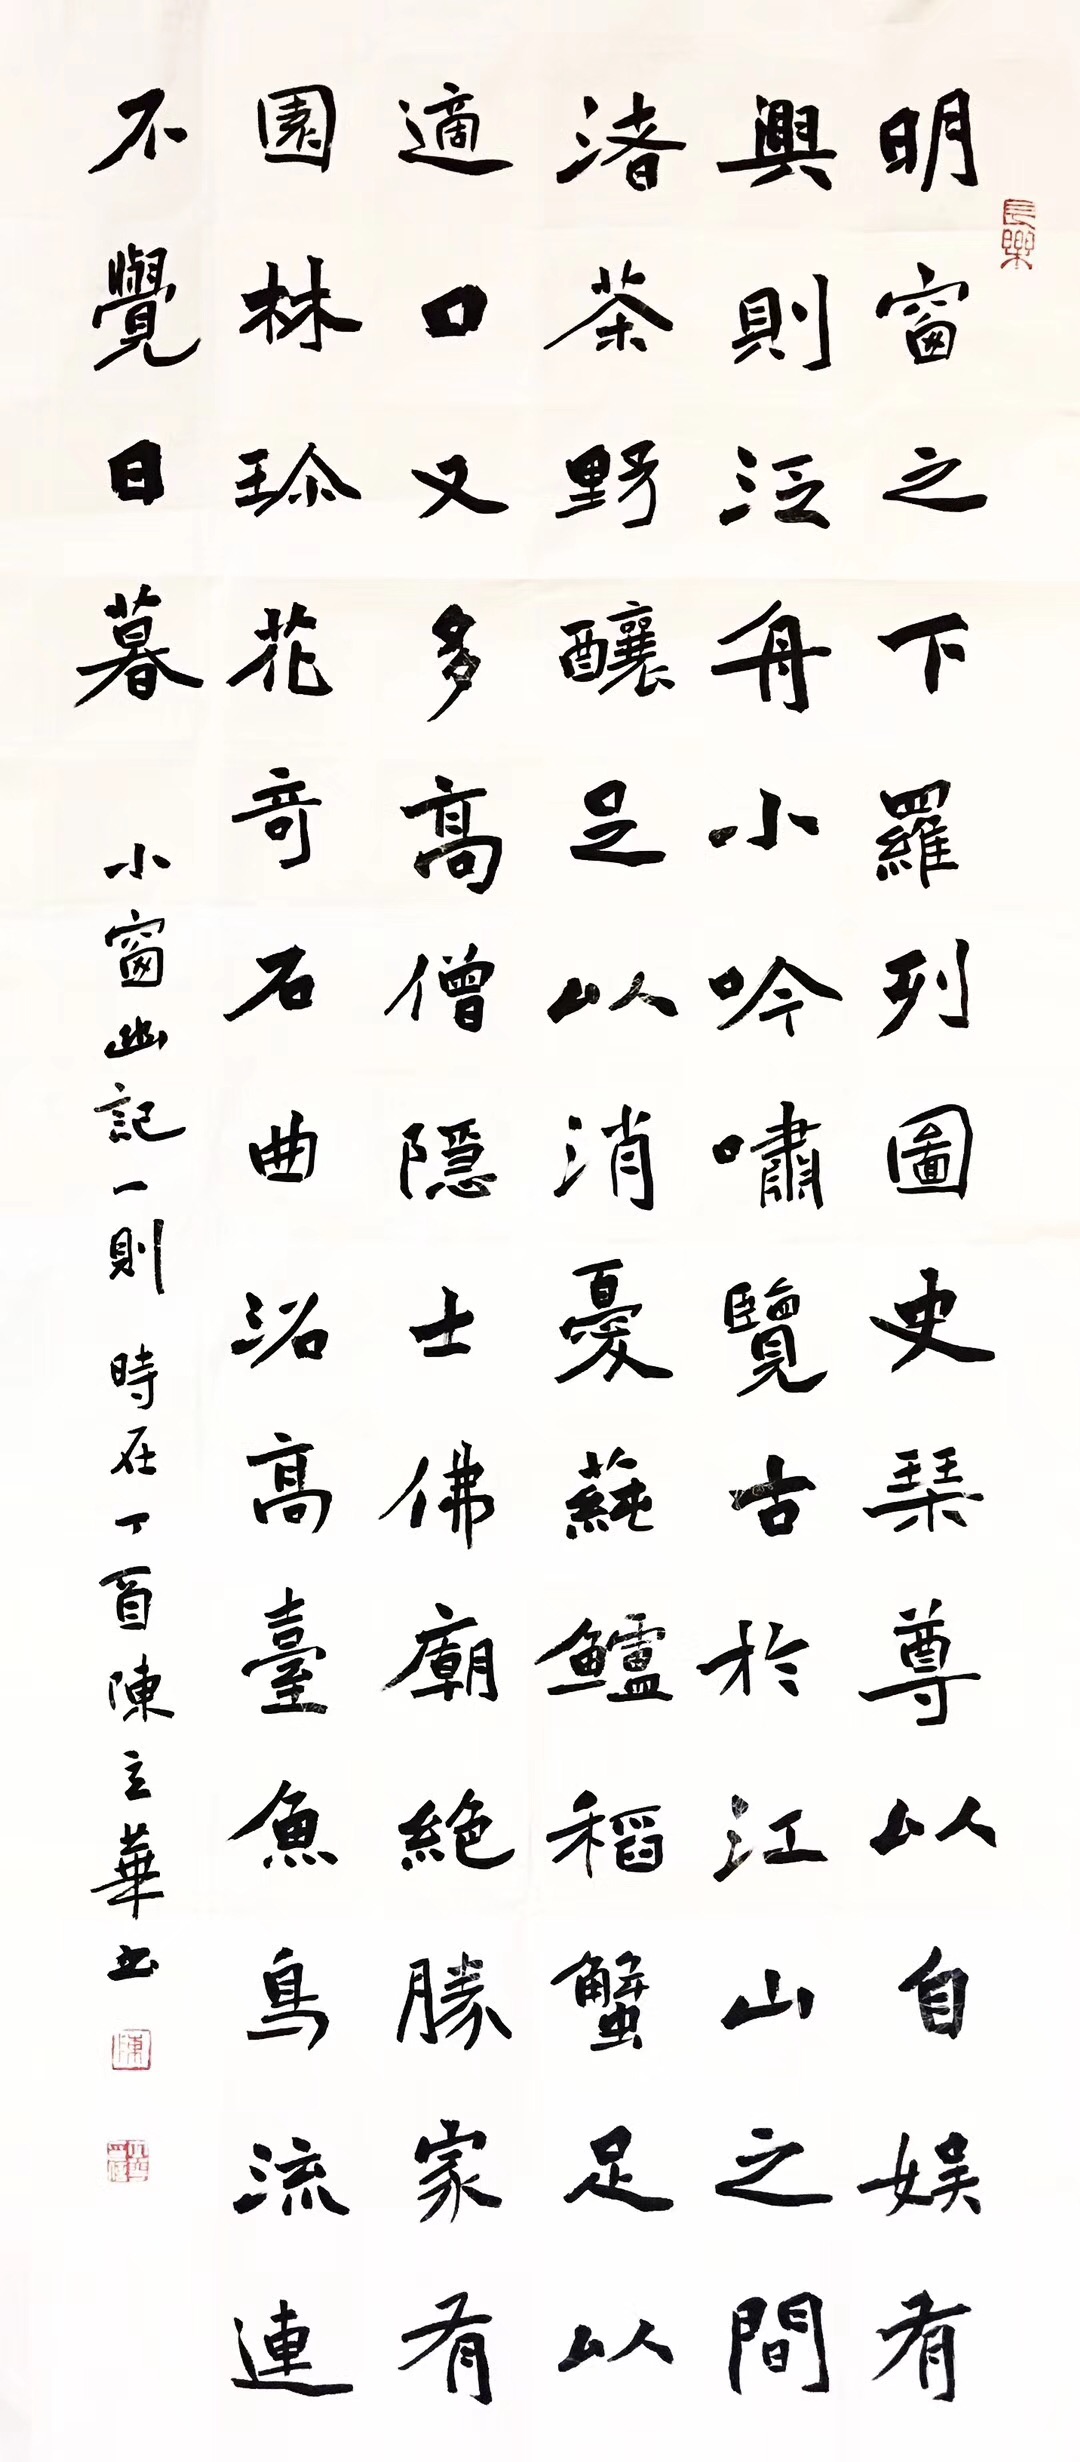 長樂
明窗之下羅列圖史琴尊以自娛有
興則泛舟小吟嘯覽古於江山之間
渚茶野釀足以消憂蒓鱸稻蟹足以
適口又多高僧隱士佛廟絕勝家有
園林珎花奇石曲沼高臺魚鳥流連
不覺日暮
小窗幽記一則 時在丁酉陳立華书
陳